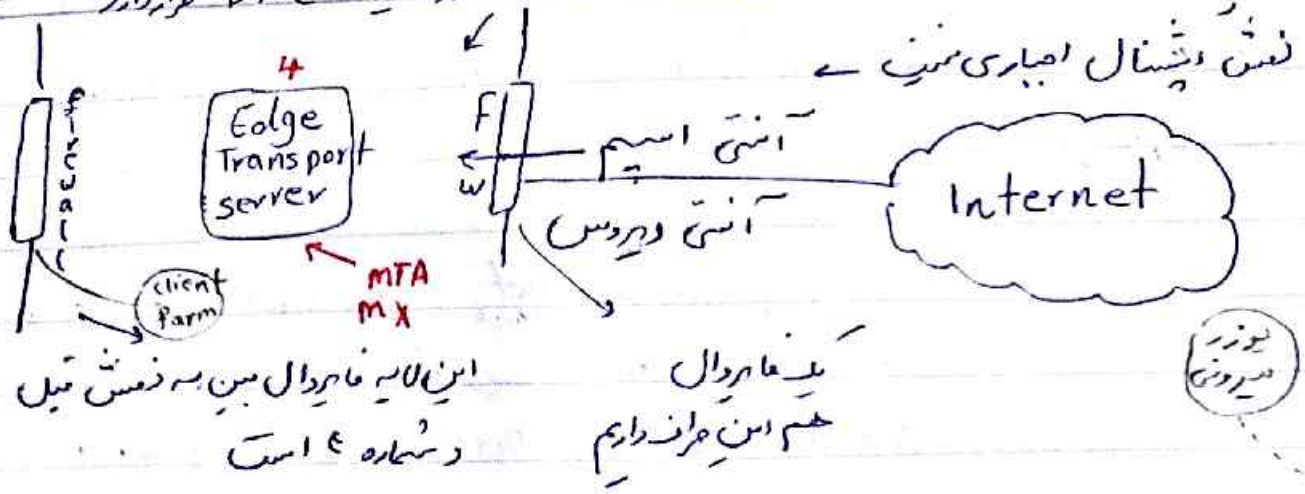 نقش آپشنال اجباری نیست ←
firewall
4
Edge
Transport
server
FW
آنتی اسپم
آنتی ویروس
Internet
MTA
MX
client
Parm
این لایه فایروال بین سه نقش قبل
و شماره ٤ است
یک فایروال
هم این طرف داریم
یوزر
بیرونی